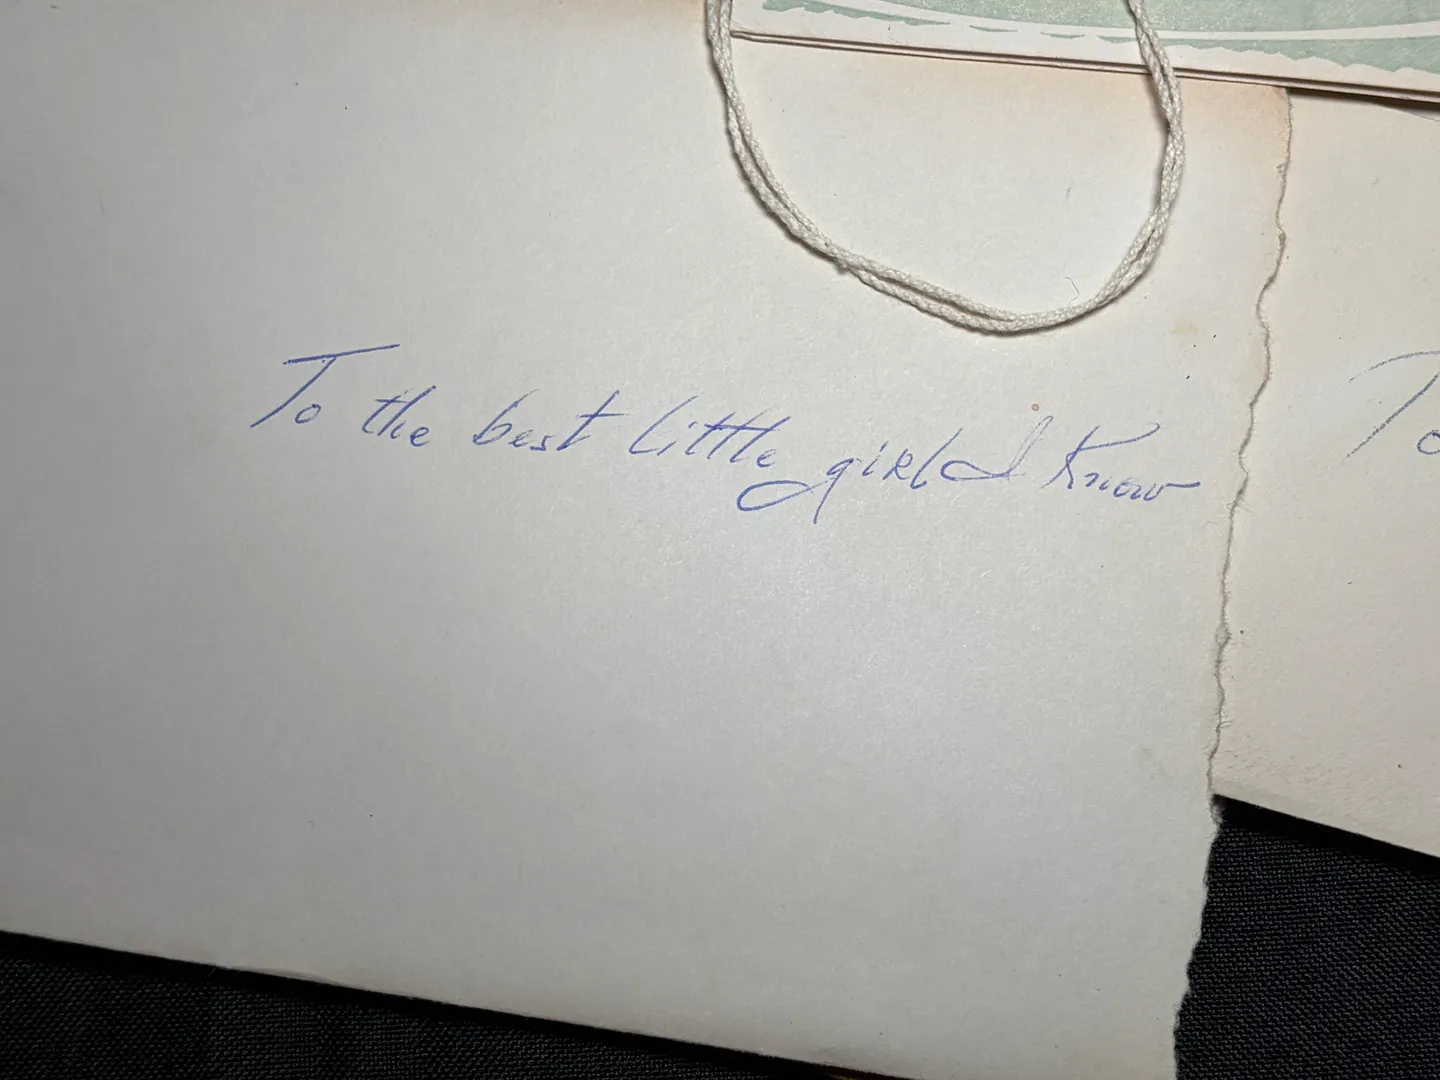 To the best little girl I Know
To